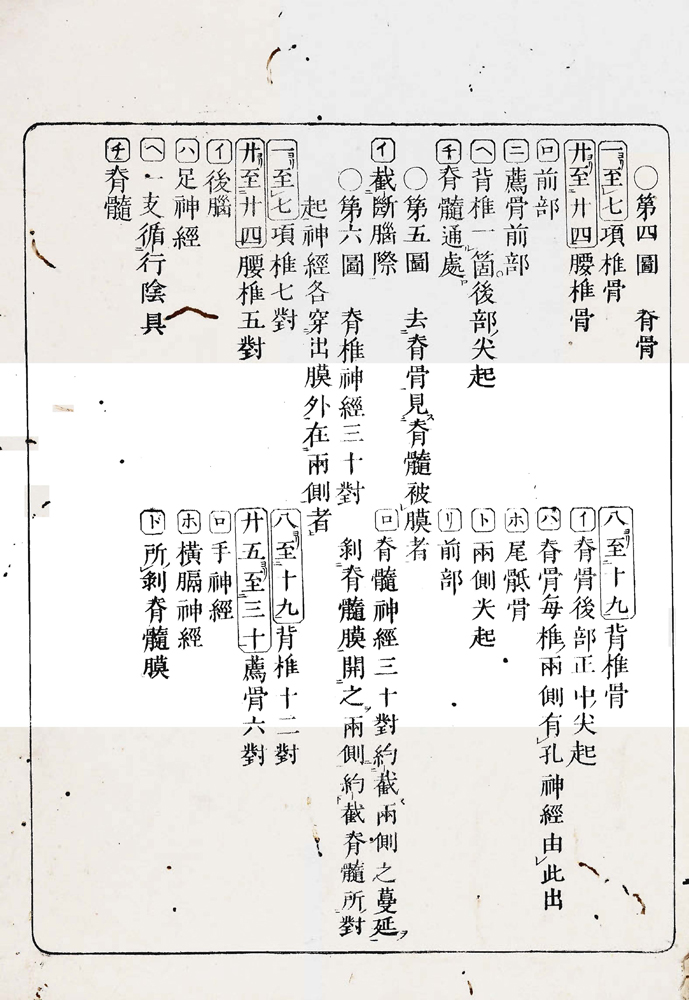 ○第四圖　脊骨
一ヨリ至レ七項椎骨　八ヨリ至二十九一背椎骨
廿ヨリ至廿四腰椎骨　イ脊骨後部正中尖起
ロ前部　ハ脊骨每椎兩側有レ孔神經由レ此出
ニ薦骨前部　ホ尾骶骨
ヘ背椎一箇後部尖起　ト兩側尖起
チ脊髓通處　リ前部
○第五圖　去二脊骨一見ス三脊髓被レ膜者
イ截二斷腦際　ロ脊髓神經三十對約二截兩側之蔓延一ヲ
○第六圖　脊椎神經三十對　剝二脊髓膜一開レ之兩側約二截脊髓所レ對
起神經各穿二出膜外一在二兩側一者
一ヨリ至レ七項椎七對　八ヨリ至二十九一背椎十二對
廿ヨリ至廿四腰椎五對　廿五ヨリ至三十薦骨六對
イ後腦　ロ手神經
ハ足神經　ホ橫膈神經
ヘ一支循二行陰具一　ト所レ剝脊髓膜
チ脊髓